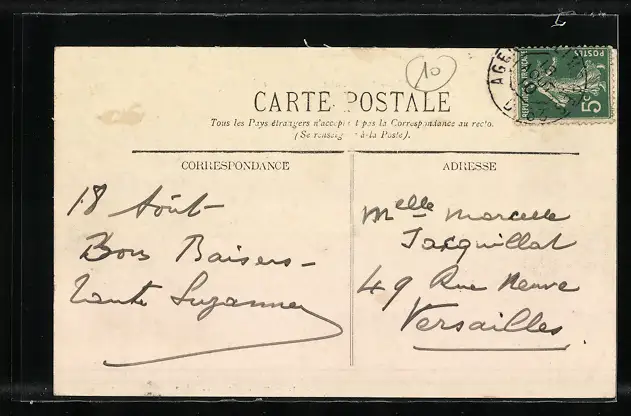 10
CARTE POSTALE
Tous les Pays étrangers n'acceptent pas la Correspondance au recto.
(Se renseigner à la Poste).
CORRESPONDANCE
ADRESSE
18 Août
Bons Baisers
Tante Suzanne
Melle Marcelle
Jacquillat
49 Rue Neuve
Versailles
POSTES
5c
AGE